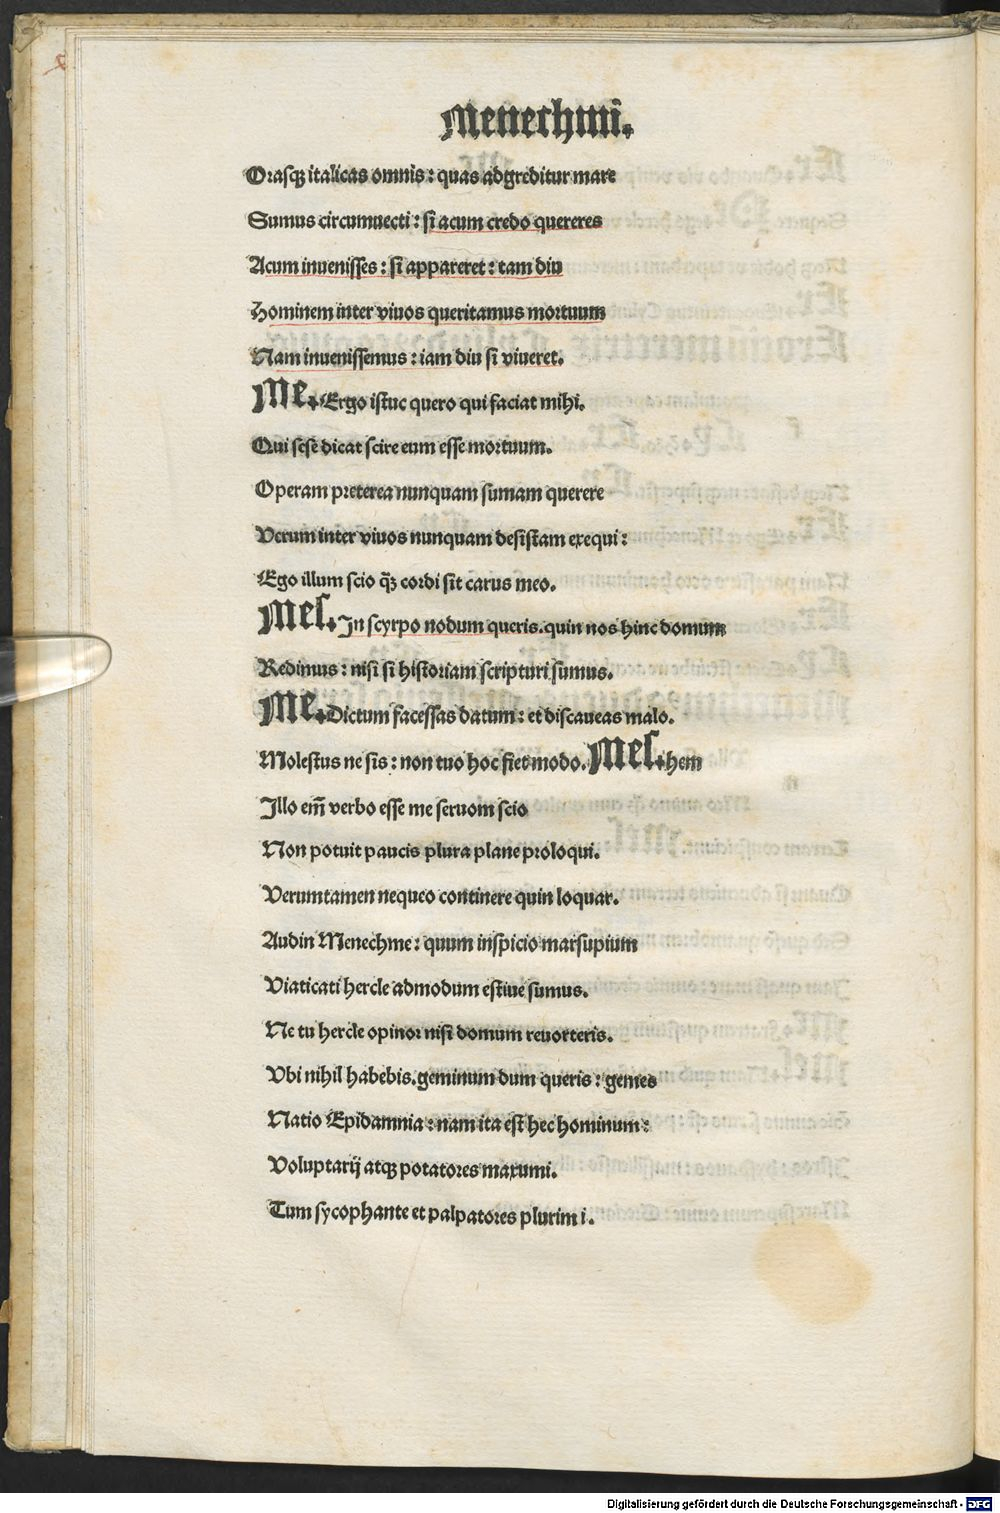 Menechmi.
Orasqꝫ italicas omnis: quas adgreditur mare
Sumus circumuecti: si acum credo quereres
Acum inuenisses: si appareret: tam diu
Hominem inter viuos queritamus mortuum
Nam inuenissemus: iam diu si viueret.
Me. Ergo istuc quero qui faciat mihi.
Qui sese dicat scire eum esse mortuum.
Operam preterea nunquam sumam querere
Verum inter viuos nunquam desistam exequi:
Ego illum scio qꝫ̃ cordi sit carus meo.
Mes. In scyrpo nodum queris. quin nos hinc domum
Redimus: nisi si historiam scripturi sumus.
Me. Dictum facessas datum: et discaueas malo.
Molestus ne sis: non tuo hoc fiet modo. Mes. hem
Illo em̃ verbo esse me seruom scio
Non potuit paucis plura plane proloqui.
Verumtamen nequeo continere quin loquar.
Audin Menechme: quum inspicio marsupium
Viaticati hercle admodum estiue sumus.
Ne tu hercle opinor nisi domum reuorteris.
Vbi nihil habebis. geminum dum queris: gemes
Natio Epidamnia: nam ita est hec hominum:
Voluptarij atqꝫ potatores maxumi.
Tum sycophante et palpatores plurimi.
Digitalisierung gefördert durch die Deutsche Forschungsgemeinschaft - DFG